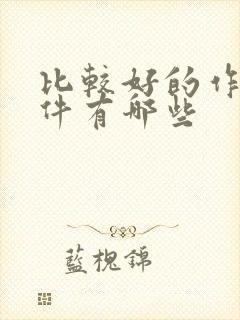 比較好的作
件有哪些
藍槐錦